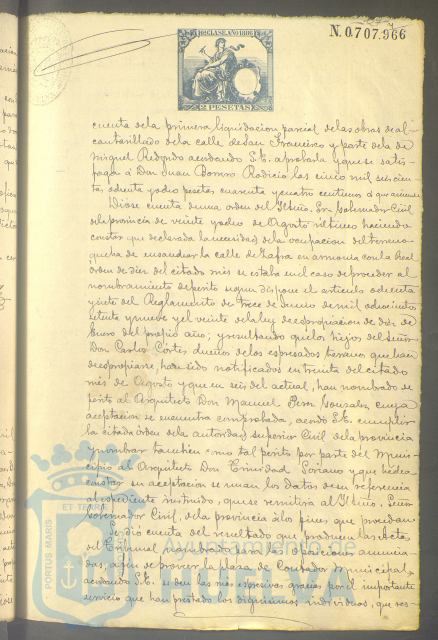 N.0.707.966
10ª CLASE. AÑO 1886
2 PESETAS
cuenta de la primera liquidacion parcial de las obras de al-
cantarillado de la calle de San Francisco y parte de la de
Miguel Redondo acordando S.E. aprobarla y que se satis-
faga á Don Juan Borrero Rodicio las cinco mil seiscien-
tas ochenta y ocho pesetas cuarenta y cuatro centimos á que asciende
Dióse cuenta de una orden del Iltmo. Sr. Gobernador Civil
de la provincia de veinte y ocho de Agosto último haciendo
constar que declarada la necesidad de la ocupacion del terreno
que ha de ensanchar la calle de Zafra en armonia con la Real
orden de diez del citado mes se estaba en el caso de proceder al
nombramiento de perito segun dispone el articulo ochenta
y siete del Reglamento de trece de Junio de mil ochocientos
setenta y nueve y el veinte de la ley de espropiacion de diez de
Enero del propio año; y resultando que los hijos del Señor
Don Carlos Cortés dueños de los espresados terrenos que han
de espropiarse, han sido notificados en treinta del citado
mes de Agosto y que en seis del actual, han nombrado de
perito al Arquitecto Don Manuel Perez Gonzalez cuya
aceptacion se encuentra comprobada, acordó S.E. cumplir
la citada orden de la autoridad superior Civil de la provincia
y nombrar tambien como tal perito por parte del Muni-
cipio al Arquitecto Don Trinidad Soriano y que hecha
constar su aceptacion se unan los datos de su referencia
al espediente instruido, que se remitirá al Iltmo. Señor
Gobernador Civil, de la provincia á los fines que procedan.
Se dió cuenta del resultado que producen las actas
del Tribunal nombrado para las oposiciones anuncia-
das, á fin de proveer la plaza de Contador Municipal,
acordando S.E. se den las mas espresivas gracias por el importante
servicio que han prestado los dignisimos individuos, que res-
PORTUS MARIS
ET TERRÆ
Ayuntamiento de
HUELVA